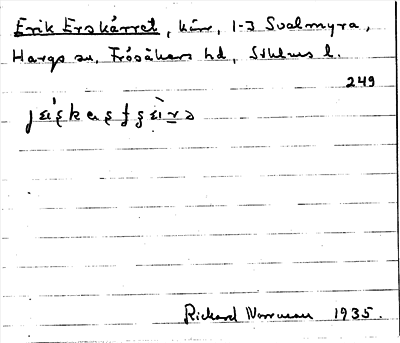 Erik Erskärret, kärr, 1-3 Svalmyra,
Hargs sn, Frösåkers hd, Sthlms l.
249
Richard Norrman 1935.